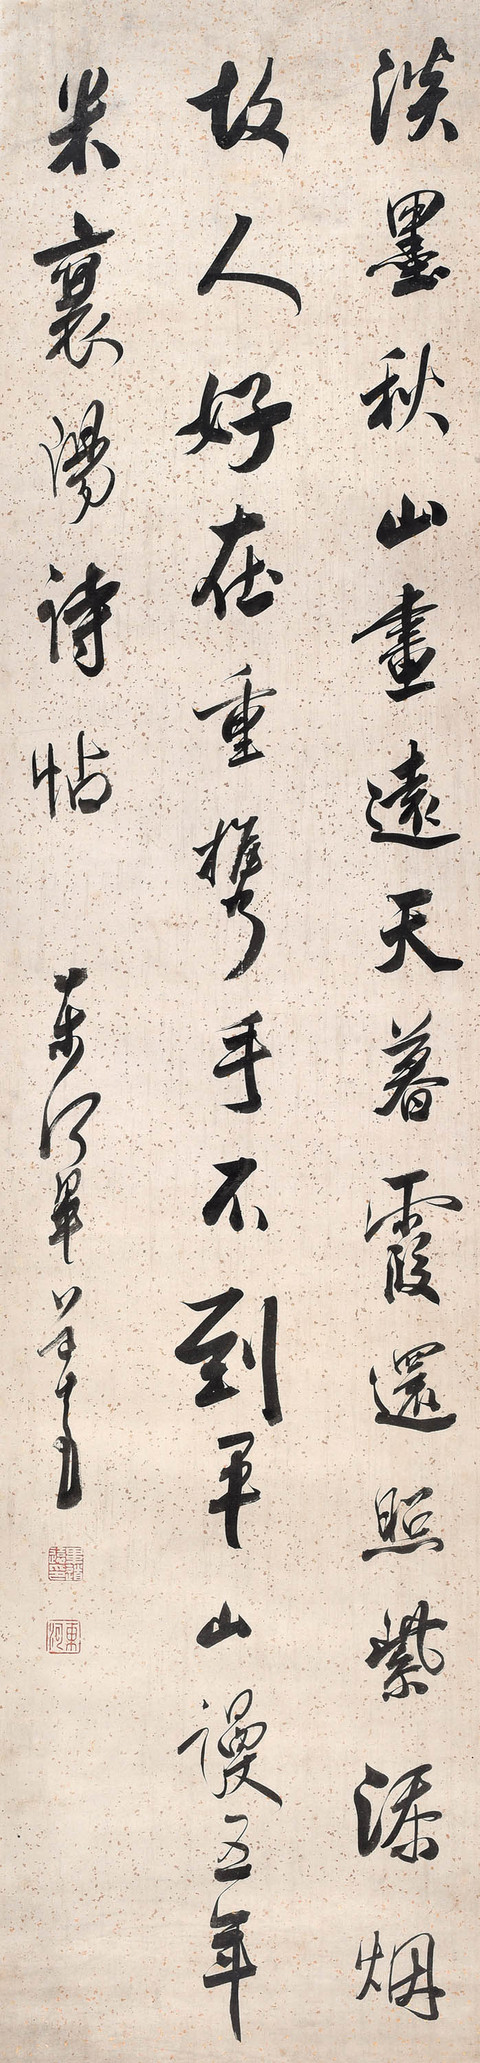 淡墨秋山畫遠天暮霞還照紫添烟
故人好在重攜手不到平山謾五年
米襄陽詩帖 東河畢道遠
畢道遠印
東河